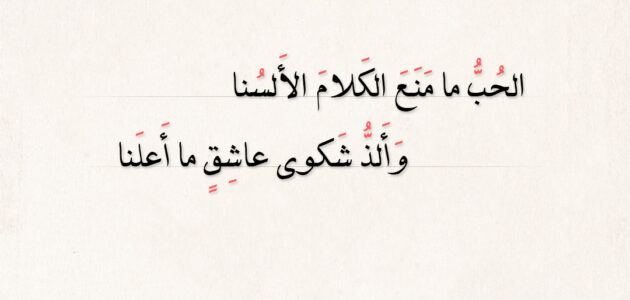 الحُبُّ ما مَنَعَ الكَلامَ الأَلسُنا
وَأَلَذُّ شَكوى عاشِقٍ ما أَعلَنا